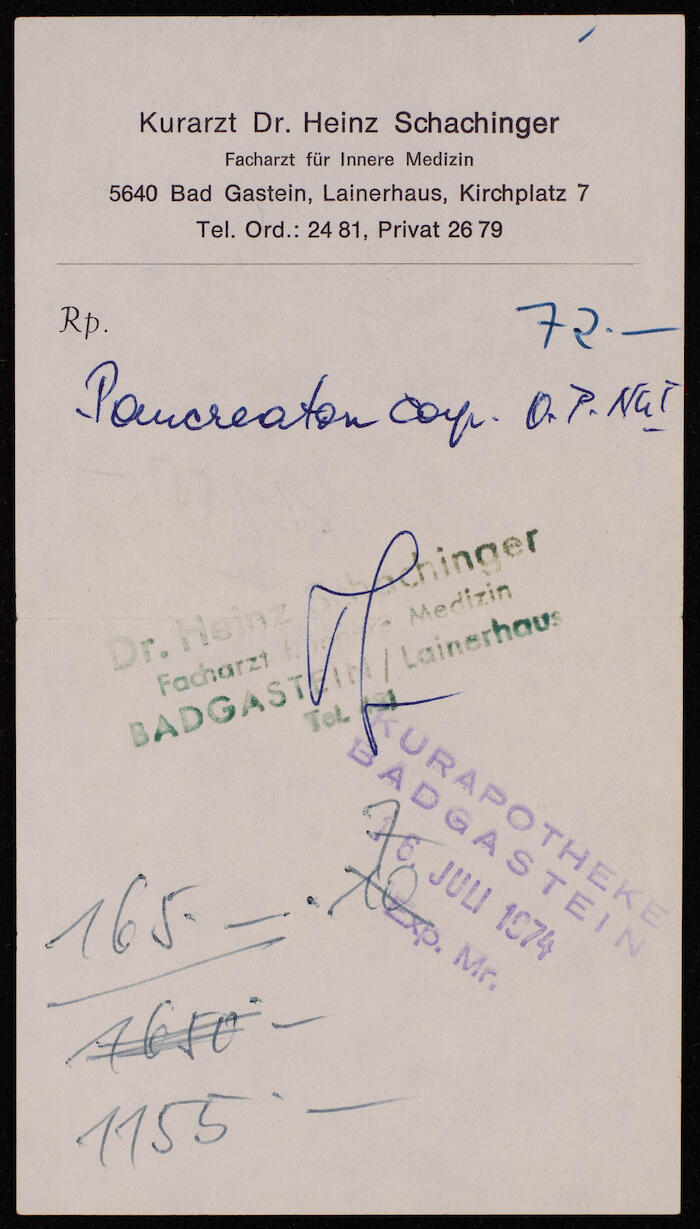 Kurarzt Dr. Heinz Schachinger
Facharzt für Innere Medizin
5640 Bad Gastein, Lainerhaus, Kirchplatz 7
Tel. Ord.: 24 81, Privat 26 79
Rp.
72.—
Pancreaton comp. O. P. No I
Dr. Heinz Schachinger
Facharzt f. Innere Medizin
BADGASTEIN / Lainerhaus
Tel. 481
KURAPOTHEKE
BADGASTEIN
16. JULI 1974
Exp. Mr.
7
165.— . 10
1650.—
1155.—